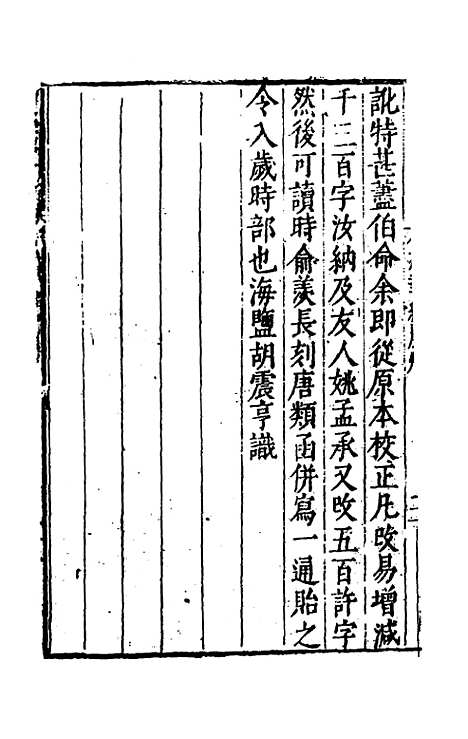 訛特甚蓋伯命余即從原本校正凡改易增減
千二百字汝納及友人姚孟承又改五百許字
然後可讀時俞羨長刻唐類函併寫一通貽之
令入歲時部也海鹽胡震亨識